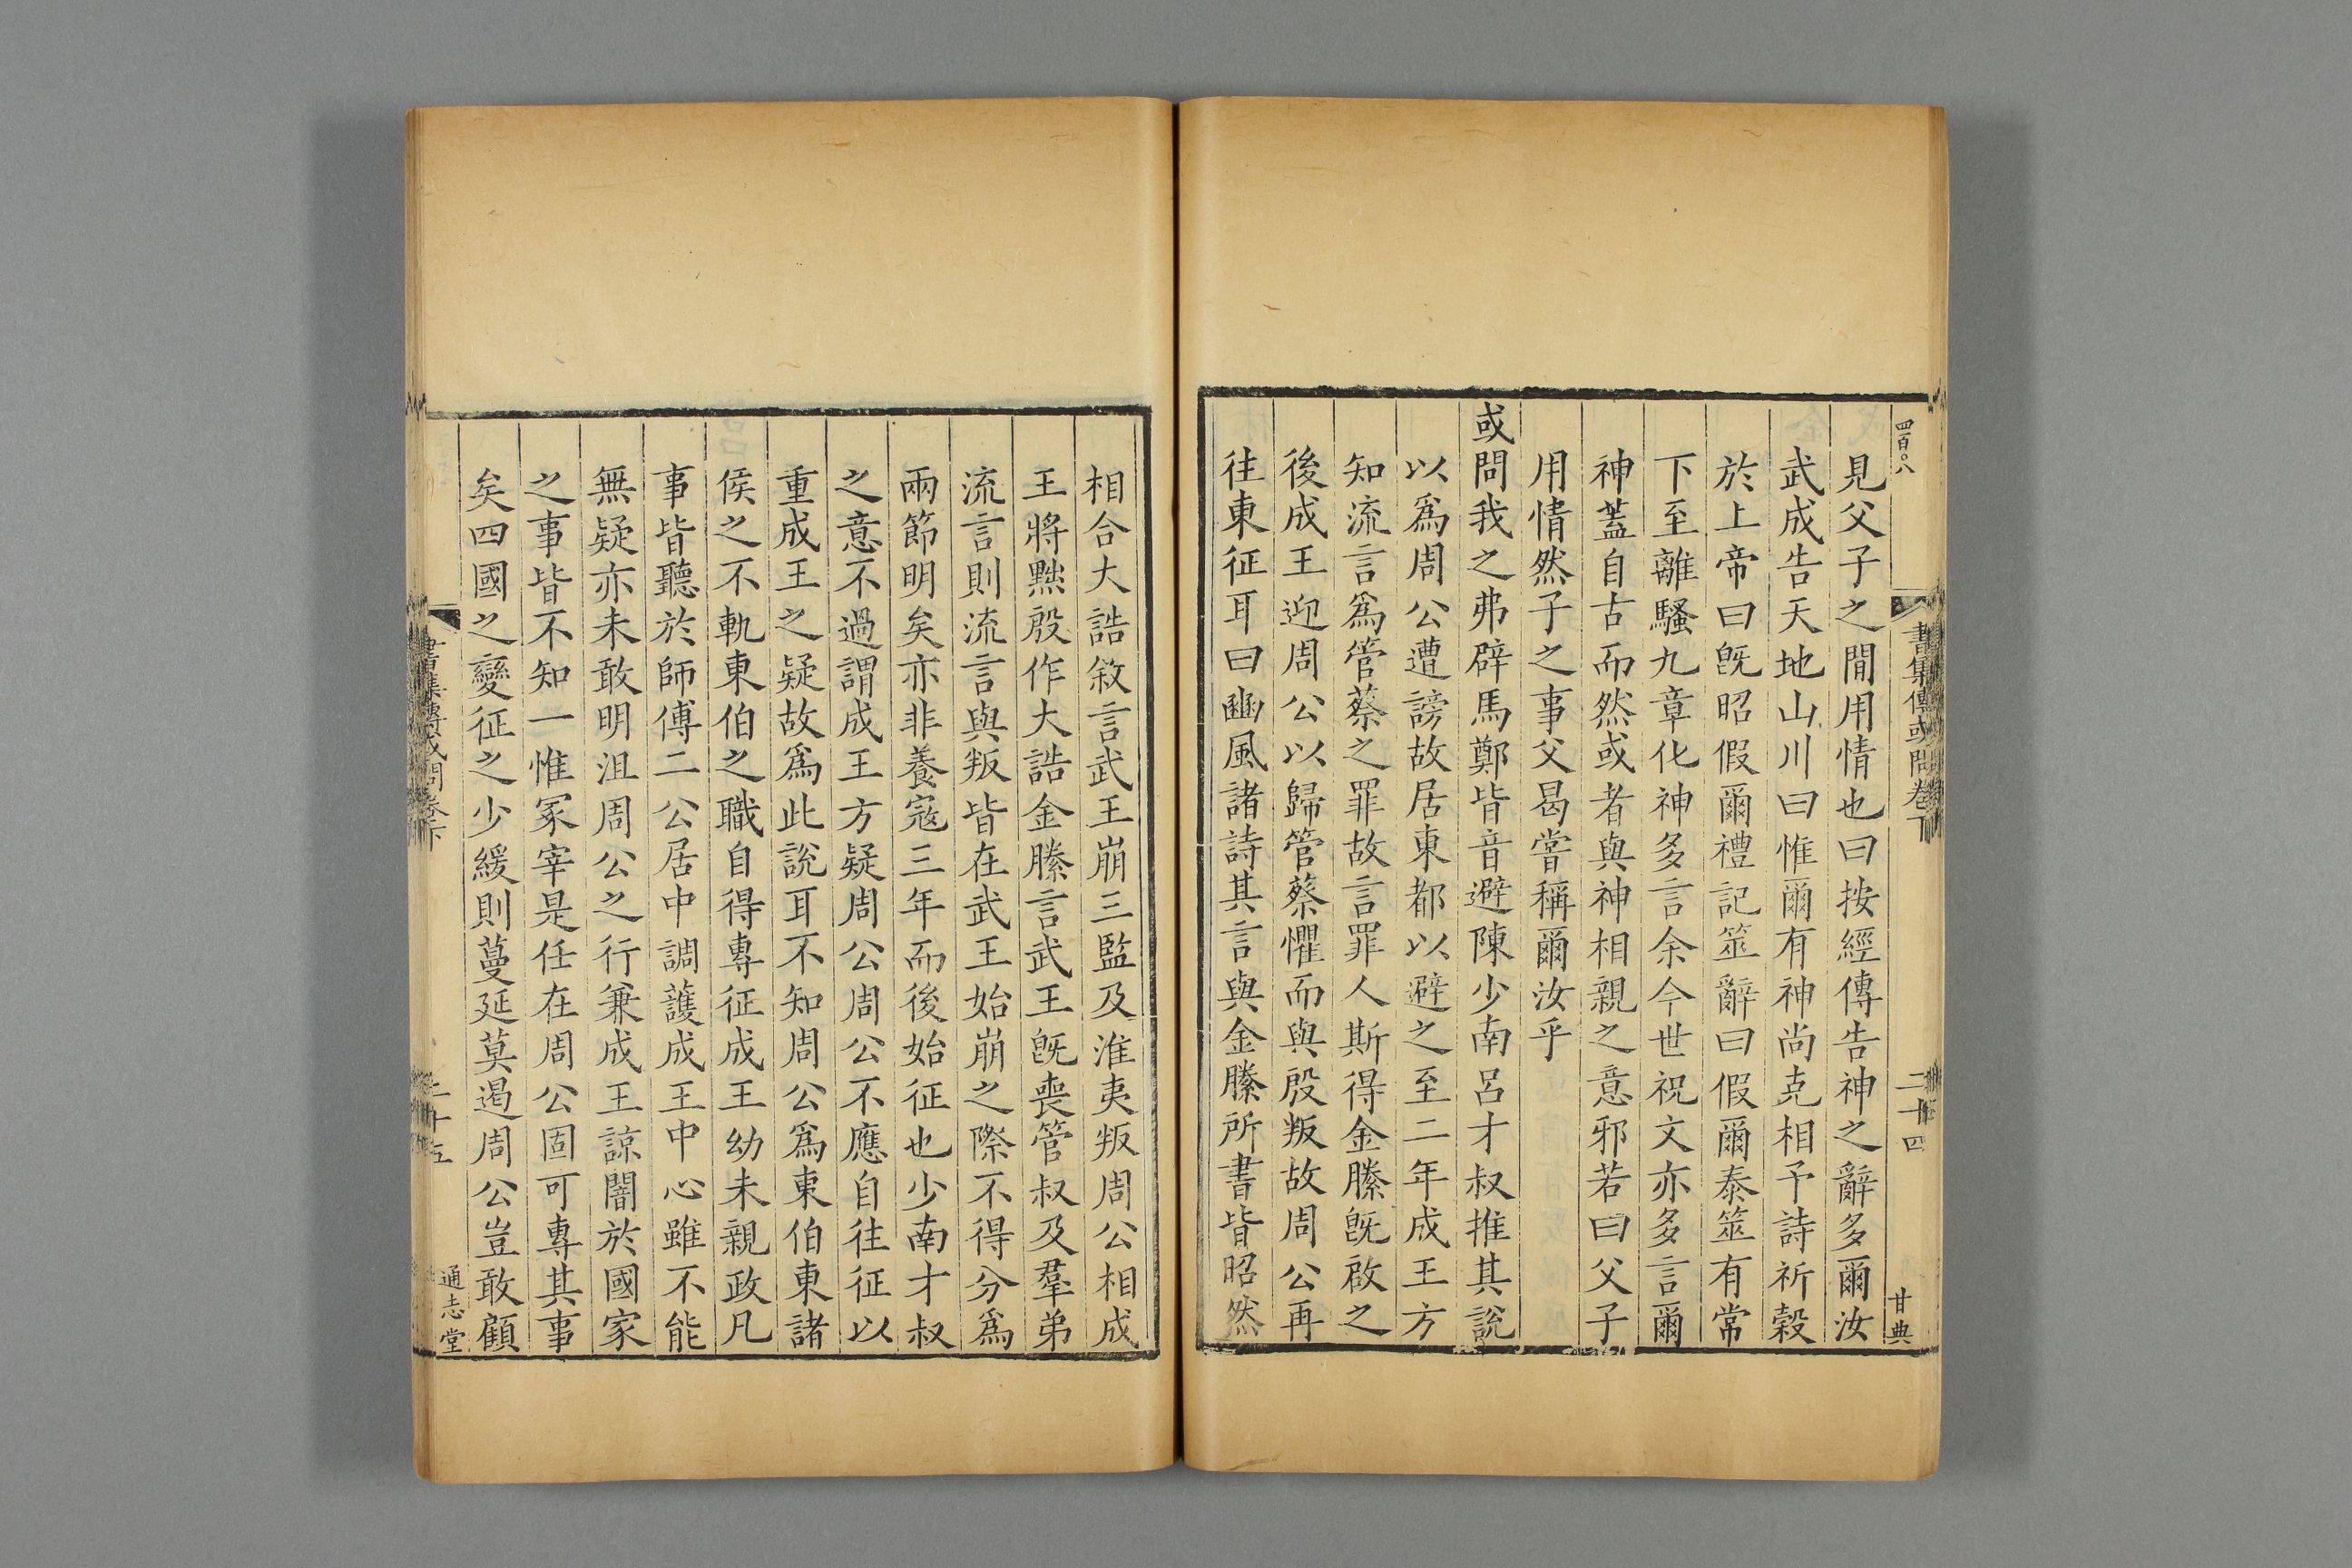 四百〇八
書集傳或問卷下
二十四
甘典
見父子之間用情也曰按經傳告神之辭多爾汝
武成告天地山川曰惟爾有神尚克相予詩祈穀
於上帝曰旣昭假爾禮記筮辭曰假爾泰筮有常
下至離騷九章化神多言余今世祝文亦多言爾
神蓋自古而然或者與神相親之意邪若曰父子
用情然子之事父曷嘗稱爾汝乎
或問我之弗辟馬鄭皆音避陳少南呂才叔推其說
以爲周公遭謗故居東都以避之至二年成王方
知流言爲管蔡之罪故言罪人斯得金縢旣啟之
後成王迎周公以歸管蔡懼而與殷叛故周公再
往東征耳曰豳風諸詩其言與金縢所書皆昭然
相合大誥敘言武王崩三監及淮夷叛周公相成
王將黜殷作大誥金縢言武王旣喪管叔及羣弟
流言則流言與叛皆在武王始崩之際不得分爲
兩節明矣亦非養寇三年而後始征也少南才叔
之意不過謂成王方疑周公周公不應自往征以
重成王之疑故爲此說耳不知周公爲東伯東諸
侯之不軌東伯之職自得專征成王幼未親政凡
事皆聽於師傅二公居中調護成王中心雖不能
無疑亦未敢明沮周公之行兼成王諒闇於國家
之事皆不知一惟冢宰是任在周公固可專其事
矣四國之變征之少緩則蔓延莫遏周公豈敢顧
書集傳或問卷下
二十五
通志堂